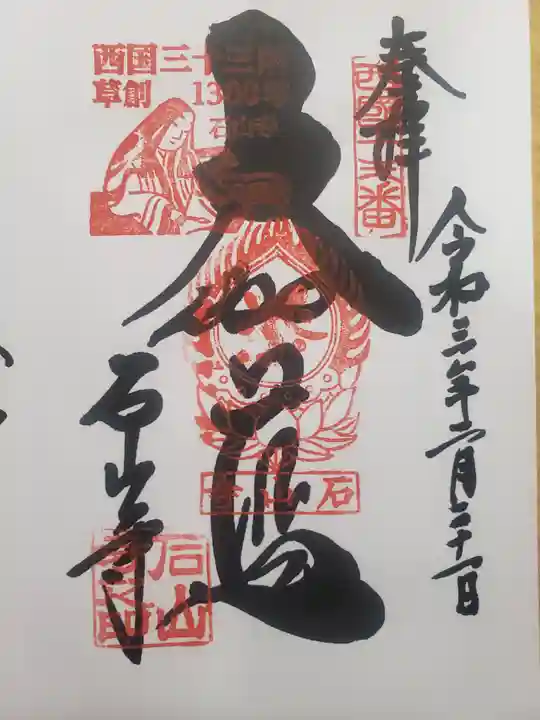 奉拝
西國十三番
令和三年 月二十一日
西国三十三所
草創 1300年
石山寺
大伽藍
石山寺
石山寺
石山